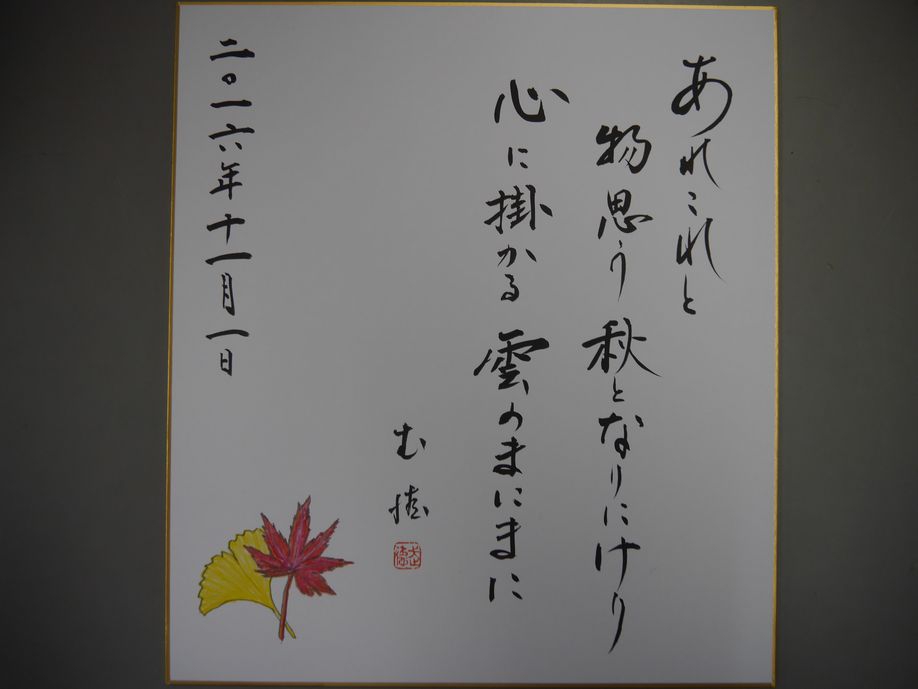 あれこれと
物思う秋となりにけり
心に掛かる雲のまにまに
む
二〇一六年十一月一日